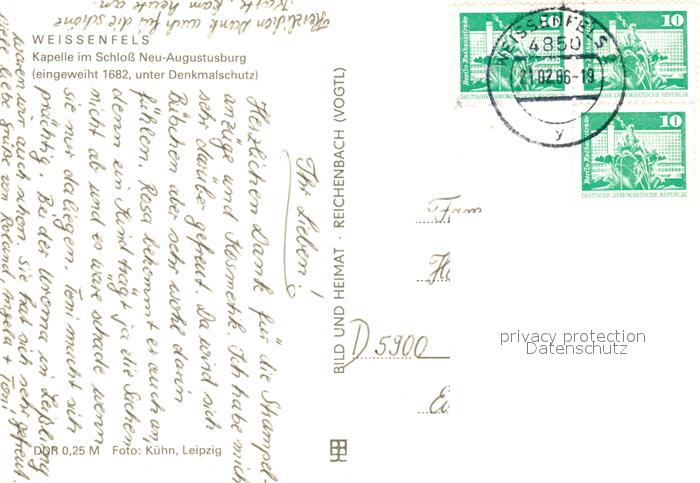 WEISSENFELS
Kapelle im Schloß Neu-Augustusburg
(eingeweiht 1682, unter Denkmalschutz)
Ihr Lieben!
Herzlichen Dank für die Strampel-
anzüge und Kosmetik. Ich habe mich
sehr darüber gefreut. Da wird sich
Bübchen aber sehr wohl darin
fühlen. Rosa bekommt er auch an,
denn ein Kind trägt ja die Sachen
nicht ab und es wäre schade wenn
sie nur daliegen. Toni macht sich
prächtig. Bei der Uroma in Leißling
waren wir auch schon. Sie hat sich sehr gefreut.
Viele liebe Grüße von Roland, Angela + Toni
Herzlichen Dank auch für die schöne
Karte, kam heute an.
DDR 0,25 M Foto: Kühn, Leipzig
BILD UND HEIMAT · REICHENBACH (VOGTL)
WEISSENFELS
4850
21.02.86-19
y
Berlin-Rathausstraße
10
DEUTSCHE DEMOKRATISCHE REPUBLIK
10
DEUTSCHE DEMOKRATISCHE REPUBLIK
Berlin-Rathausstraße
10
DEUTSCHE DEMOKRATISCHE REPUBLIK
Fam
D 5900
privacy protection
Datenschutz